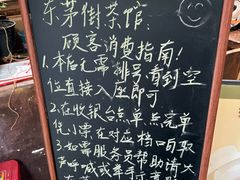 东茅街茶馆:
顾客消费指南!
1.本店无需排号看到空
位直接入座即可
2.在收银台点单点完单
凭小票在对应档口取
3.如需服务员帮助请大
声呼喊或举手示意